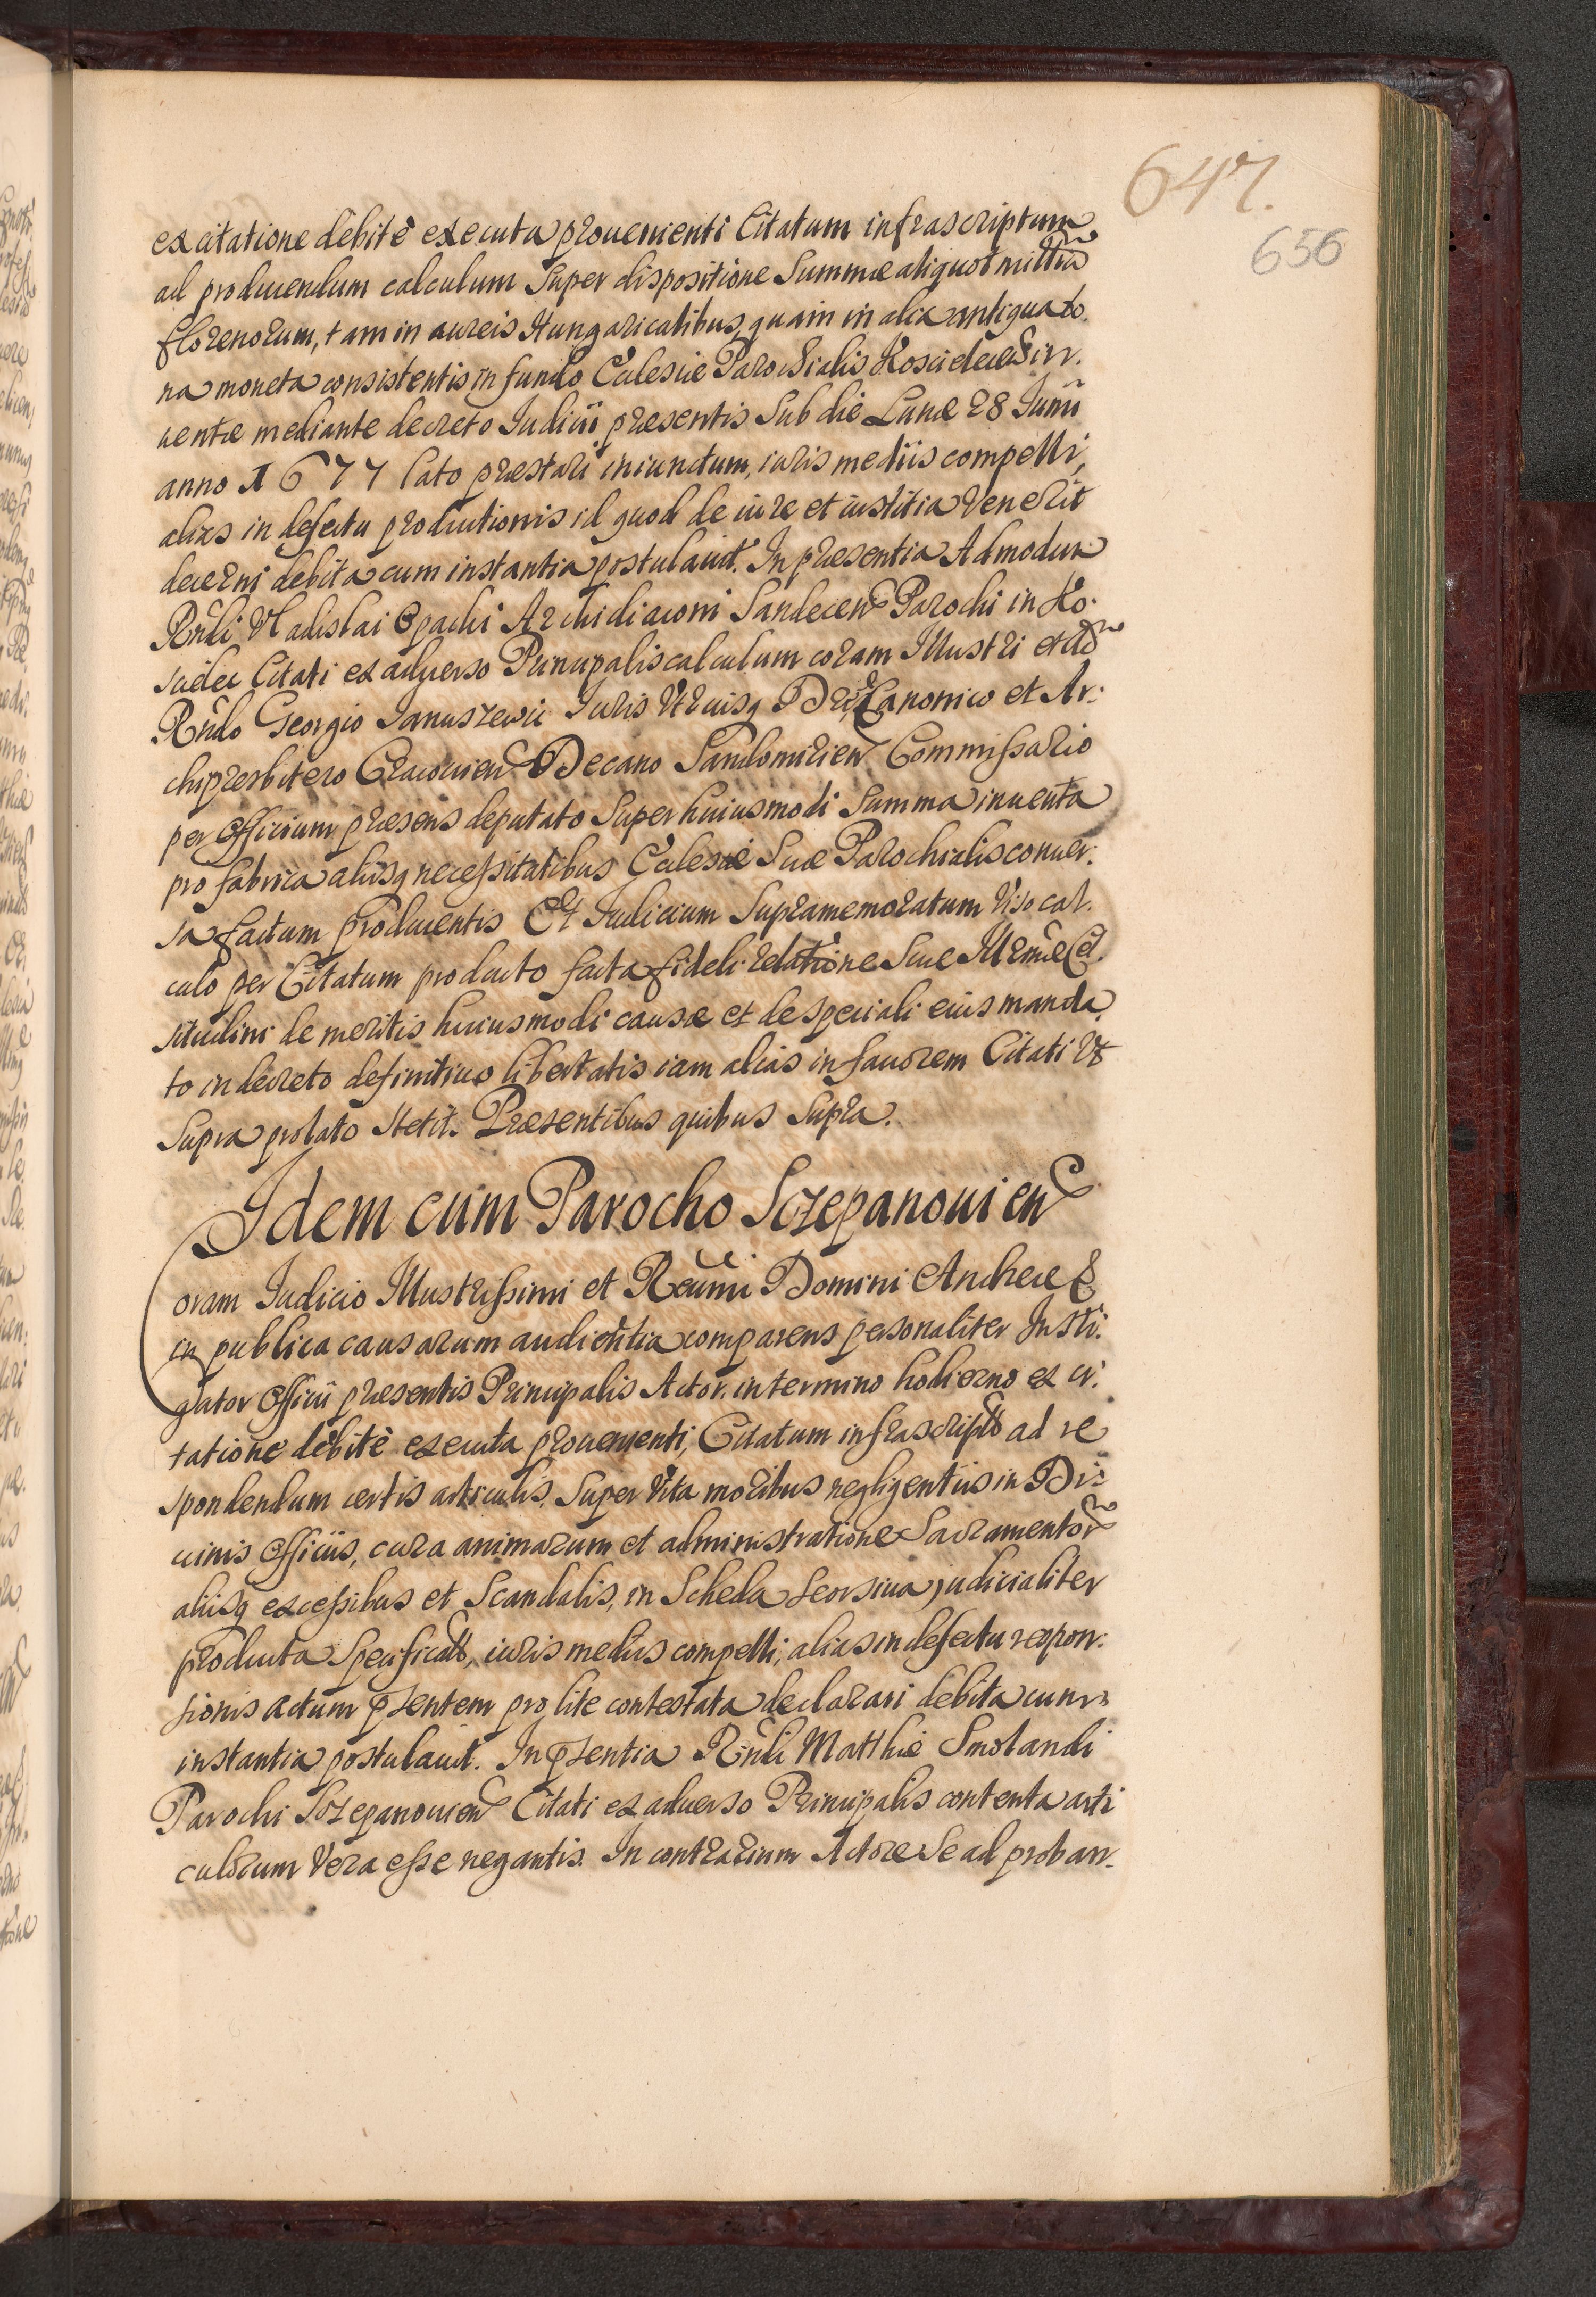 647.
656
ex citatione debitè executa prouenienti Citatum infrascriptum
ad producendum calculum Super dispositione Summæ aliquot milliū
florenorum, tam in aureis Hungaricalibus, quam in alia antiqua bo.
na moneta consistentis in fundo Ecclesiæ Parochialis Koscielec in.
uentæ mediante decreto Iudicii præsentis Sub die Lunæ 28 Iunii
anno 1677 lato præstari iniunctum, iuris mediis compelli,
alias in defectu productionis id quod de iure et iustitia Venerit
decerni debita cum instantia postulauit. In præsentia Admodum
Rńdi Vladislai Opacki Archidiaconi Sandecen Parochi in Ko.
scielec Citati ex aduerso Principalis calculum coram Illustri et Ad
Rńdo Georgio Januszewic Iuris Vtriusq Dre, Canonico et Ar:
chipresbitero Cracouien Decano Sandomirien Commissario
per Officium præsens deputato Super huiusmodi Summa inuenta
pro fabrica aliisq necessitatibus Ecclesiæ Suæ Parochialis conuer.
sa factum producentis Et Iudicium Supramemoratum Viso cal.
culo per Citatum producto facta fideli relatione Suæ Illrmæ Cel.
situdini de meritis huiusmodi causæ et de speciali eius manda
to in decreto definitiuo libertatis iam alias in fauorem Citati Vt
Supra probato Stetit. Præsentibus quibus Supra.
Idem cum Parocho Sczepanouien
Coram Iudicio Illustrissimi et Reūmi Domini Andreæ &
in publica causarum audientia comparens personaliter Insti:
gator Officii præsentis Principalis Actor in termino hodierno ex ci:
tatione debitè executa prouenienti, Citatum infrascriptū ad re
spondendum certis articulis Super Vita moribus negligentiis in Di:
uinis Officiis, cura animarum et administratione Sacramentor
aliisq excessibus et Scandalis, in Scheda Seorsiua judicialiter
producta Specificatis, iuris mediis compelli, alias in defectu respon:
sionis actum psentem pro lite contestata declarari debita cum
instantia postulauit. In psentia Rńdi Matthiæ Smolandi
Parochi Sczepanouien Citati ex aduerso Principalis contenta arti
culorum Vera esse negantis. In contrarium Actore Se ad proban.